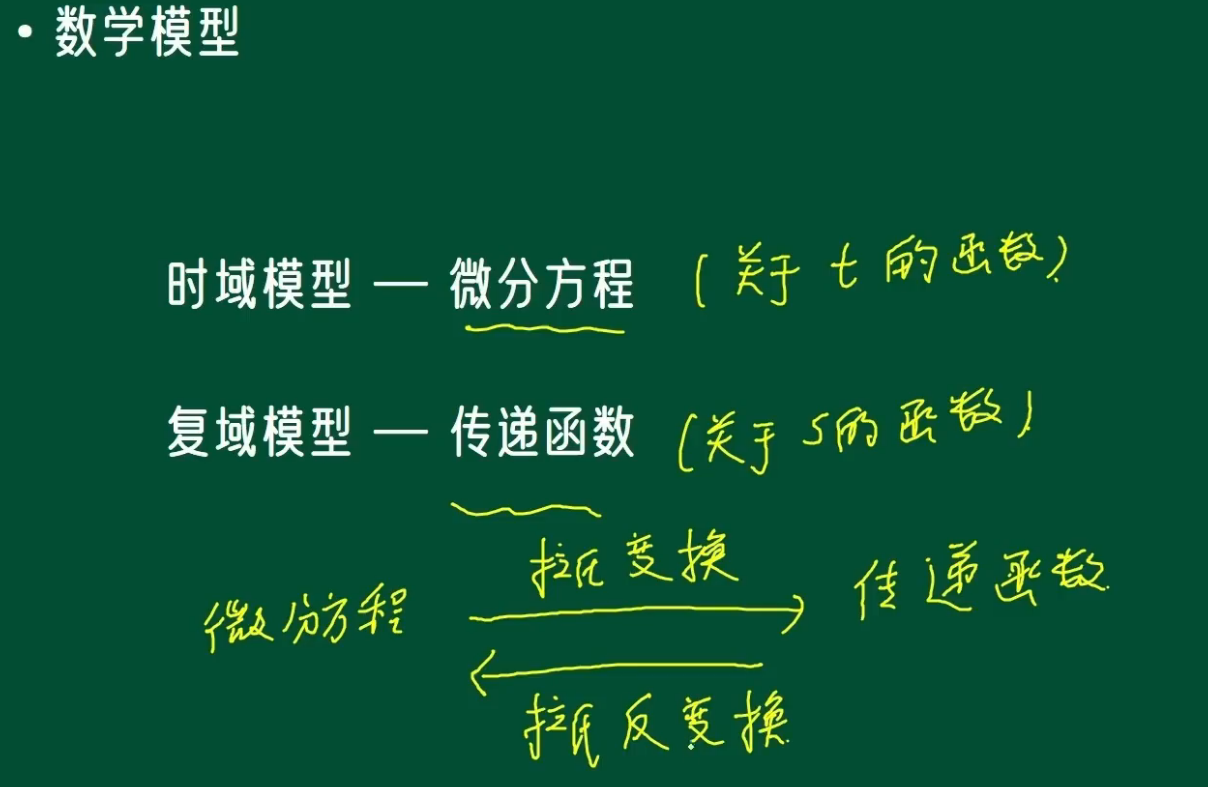 • 数学模型
时域模型 — 微分方程 (关于 t 的函数)
复域模型 — 传递函数 (关于 s 的函数)
拉氏变换
微分方程 传递函数
拉氏反变换